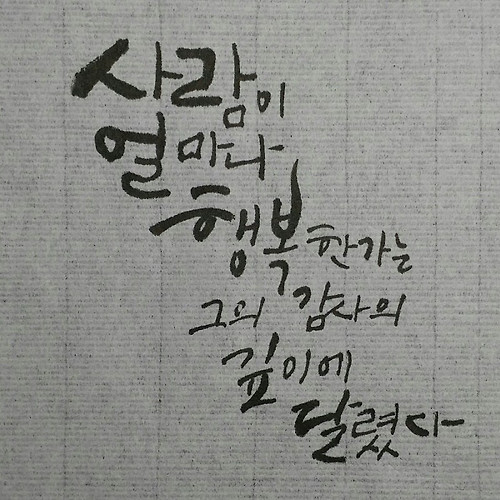 사람이
얼마나
행복한가는
그의 감사의
깊이에
달렸다